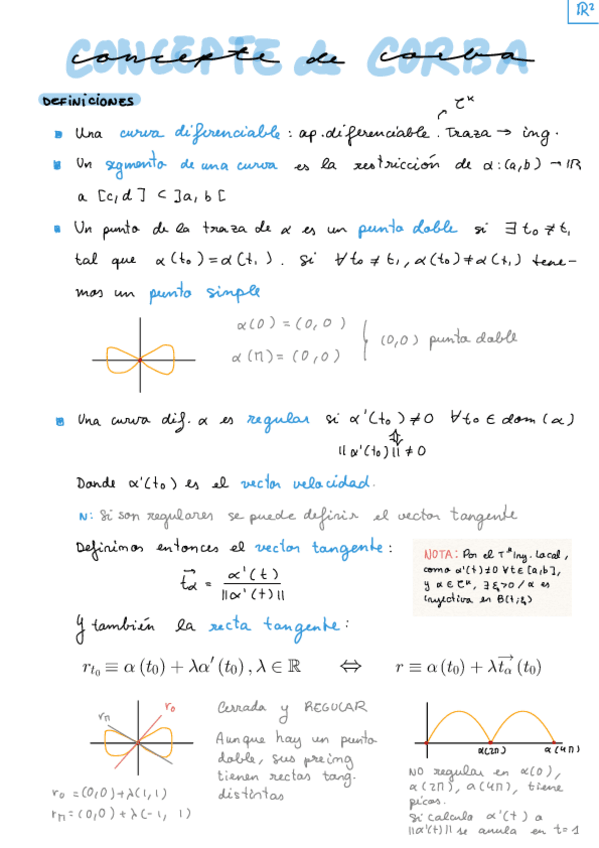 ℝ²
CONCEPTE de CORBA
concepte de corba
DEFINICIONES
Una curva diferenciable: ap. diferenciable. Traza → ing.
𝒞ᵏ
Un segmento de una curva es la restricción de α:(a,b) → ℝ
a [c,d] ⊂ ]a,b[
Un punto de la traza de α es un punto doble si ∃ t₀ ≠ t₁
tal que α(t₀) = α(t₁). Si ∀t₀ ≠ t₁, α(t₀) ≠ α(t₁) tene-
mos un punto simple
α(0) = (0,0)
α(π) = (0,0)
(0,0) punto doble
Una curva dif. α es regular si α'(t₀) ≠ 0 ∀t₀ ∈ dom(α)
⇕
||α'(t₀)|| ≠ 0
Donde α'(t₀) es el vector velocidad.
N: Si son regulares se puede definir el vector tangente
Definimos entonces el vector tangente:
t⃗α = α'(t) / ||α'(t)||
NOTA: Por el Tᵃ Ing. Local,
como α'(t) ≠ 0 ∀t ∈ [a,b],
y α ∈ 𝒞ᵏ, ∃ ξ>0 / α es
inyectiva en B(t;ξ)
Y también la recta tangente:
r_t₀ ≡ α(t₀) + λα'(t₀), λ ∈ ℝ ⇔ r ≡ α(t₀) + λt⃗α(t₀)
rπ
r₀
r₀ = (0,0) + λ(1,1)
rπ = (0,0) + λ(-1, 1)
Cerrada y REGULAR
Aunque hay un punto
doble, sus preimg
tienen rectas tang.
distintas
α(2π)
α(4π)
NO regular en α(0),
α(2π), α(4π), tiene
picos.
Si calcula α'(t) a
||α'(t)|| se anula en t=1